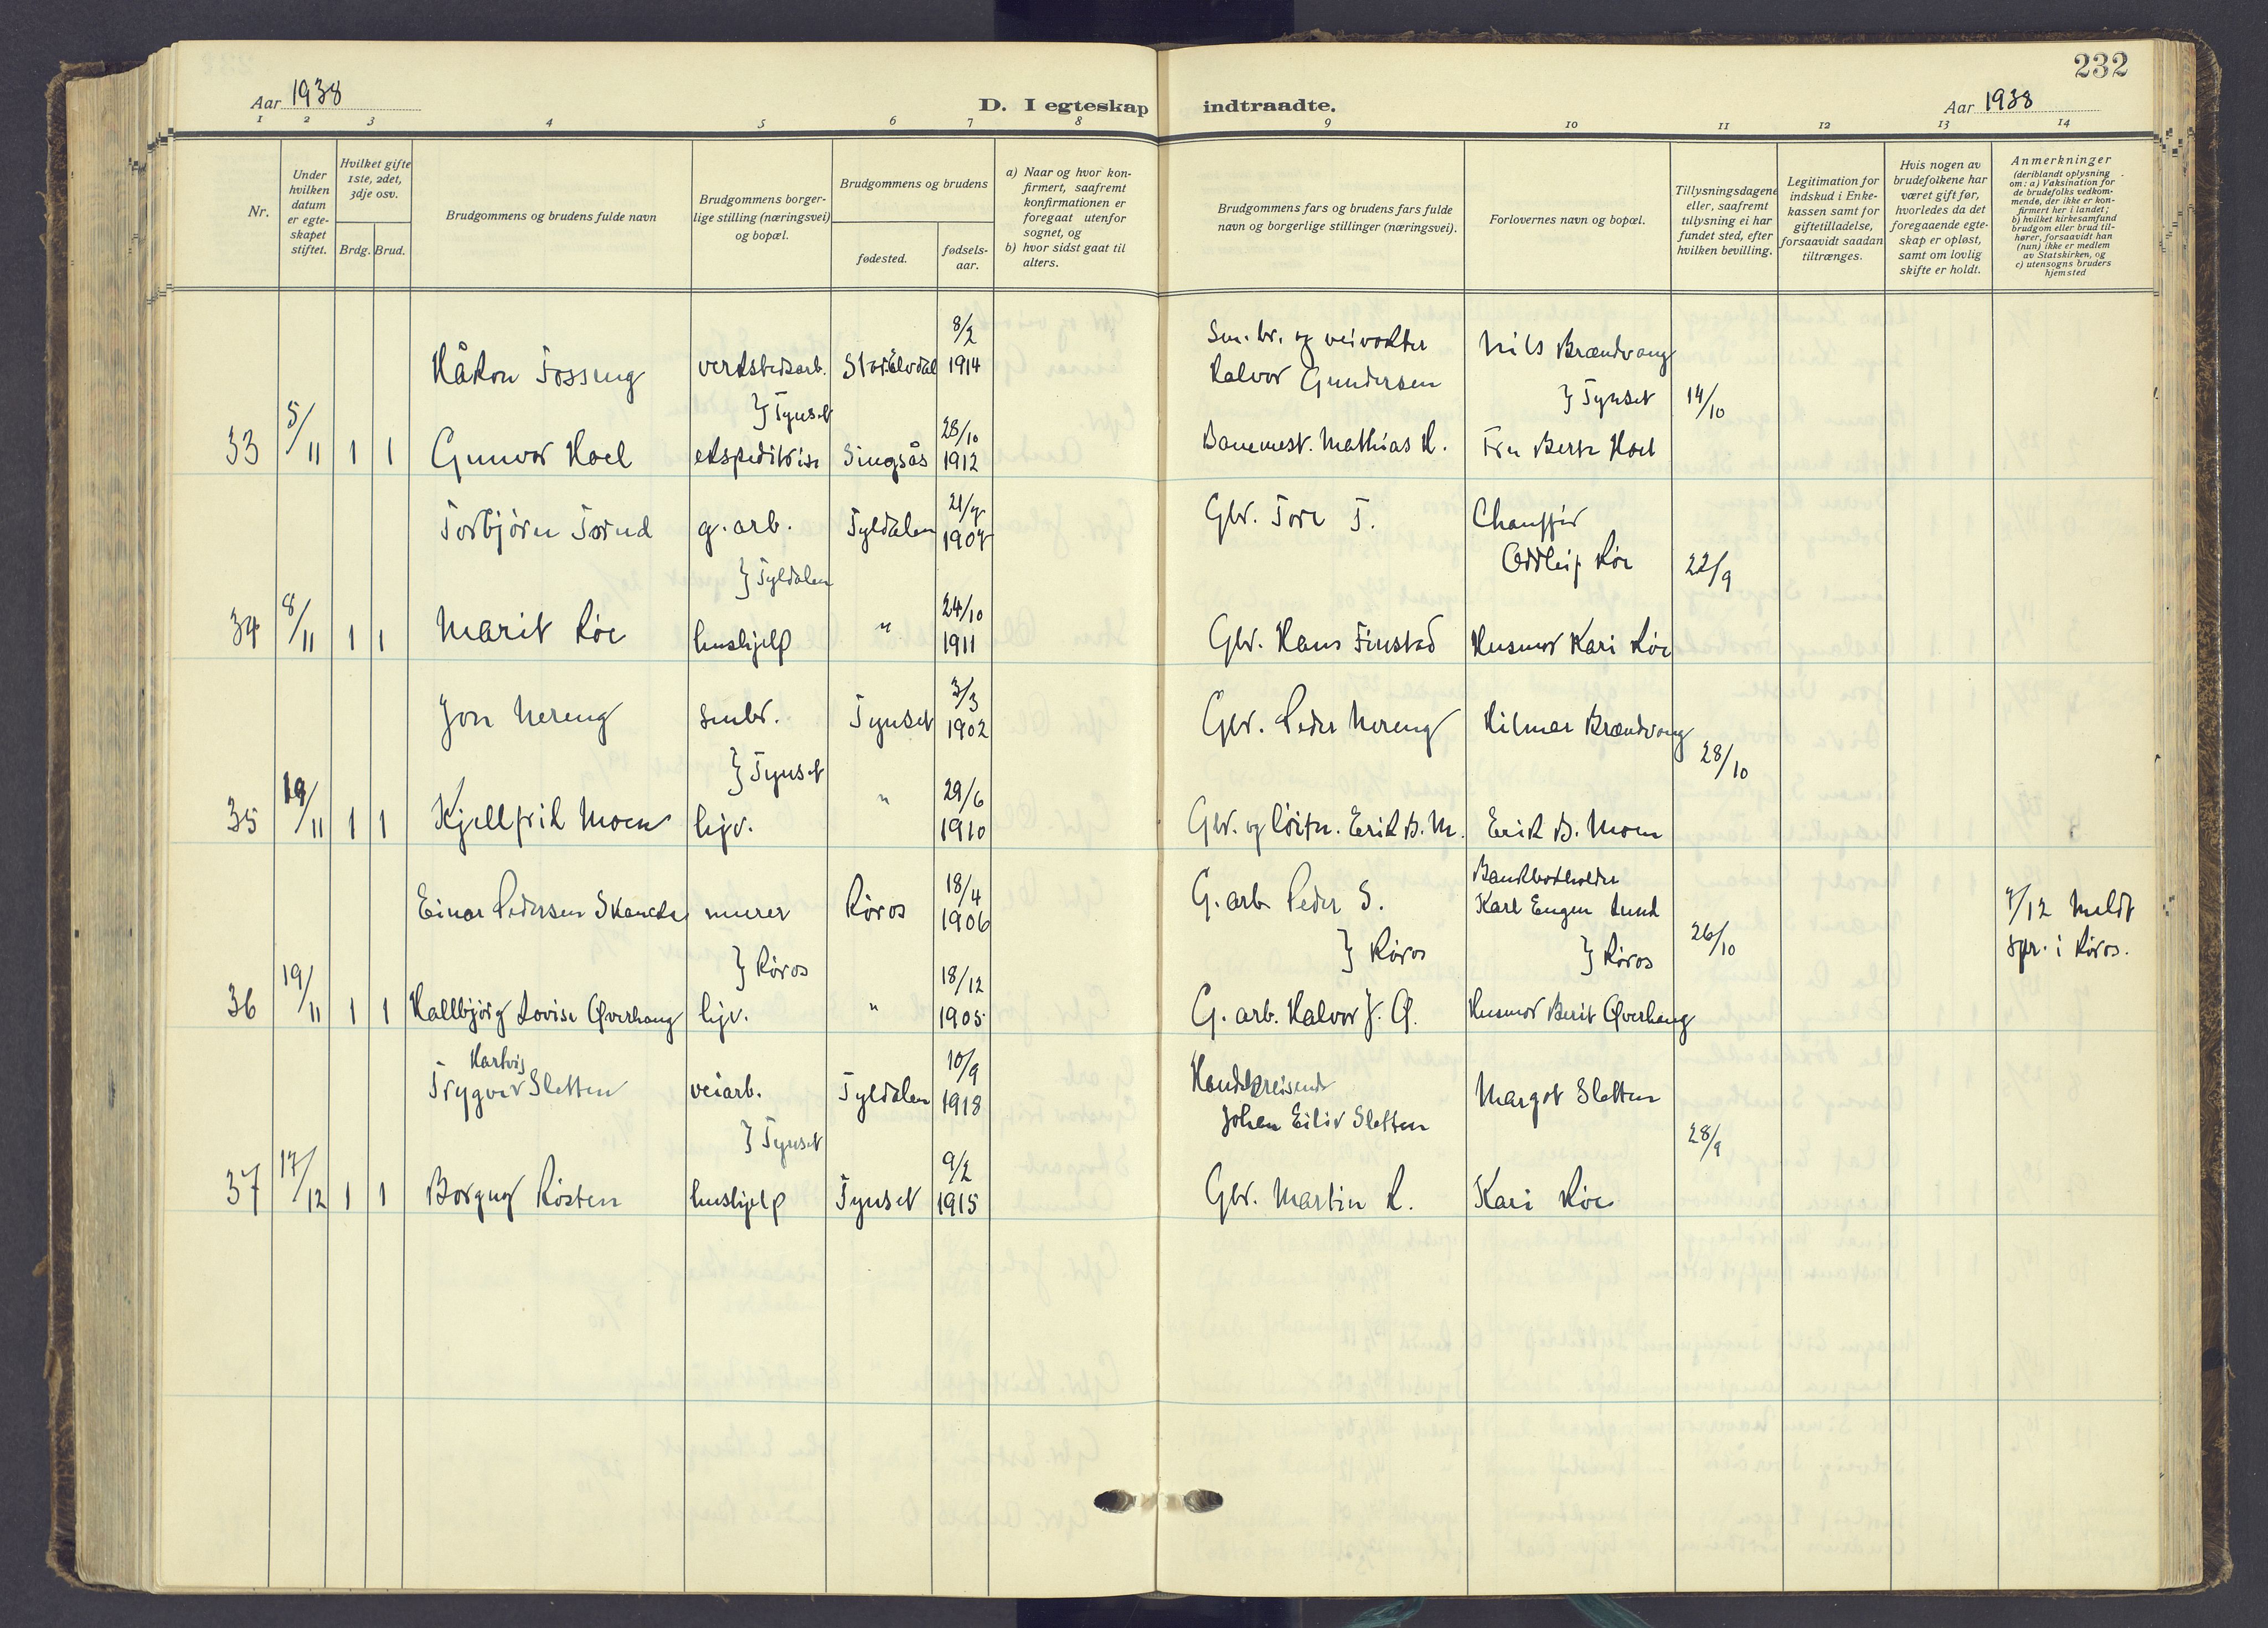 232
Aar 1938
D. I egteskap indtraadte.
Aar 1938
1 2 3 4 5 6 7 8 9 10 11 12 13 14
Nr.
Under hvilken datum er egteskapet stiftet.
Hvilket gifte 1ste, 2det, 3dje osv.
Brdg. Brud.
Brudgommens og brudens fulde navn
Brudgommens borgerlige stilling (næringsvei) og bopæl.
Brudgommens og brudens
fødested.
fødselsaar.
a) Naar og hvor konfirmert, saafremt konfirmationen er foregaat utenfor sognet, og
b) hvor sidst gaat til alters.
Brudgommens fars og brudens fars fulde navn og borgerlige stillinger (næringsvei).
Forlovernes navn og bopæl.
Tillysningsdagene eller, saafremt tillysning ei har fundet sted, efter hvilken bevilling.
Legitimation for indskud i Enkekassen samt for giftetilladelse, forsaavidt saadan tiltrænges.
Hvis nogen av brudefolkene har været gift før, hvorledes da det foregaaende egteskap er opløst, samt om lovlig skifte er holdt.
Anmerkninger (deriblandt oplysning om: a) Vaksination for de brudefolks vedkommende, der ikke er konfirmert her i landet; b) hvilket kirkesamfund brudgom eller brud tilhører, forsaavidt han (hun) ikke er medlem av Statskirken, og c) utensogns bruders hjemsted
Håkon Fosseng verkstedsarb. Stor-Elvdal 8/2 1914 Sm. br. og veivokter Halvor Gundersen Nils Brændvang
} Tynset } Tynset 14/10
33 5/11 1 1 Gunvor Hoel ekspeditrise Singsås 28/10 1912 Banemest. Mathias H. Fru Berte Hoel
Torbjörn Torud g. arb. Tyldalen 21/7 1907 Gbr. Tore T. Chauffør Oddleif Röe
} Tyldalen 22/9
34 8/11 1 1 Marit Röe hushjelp " 24/10 1911 Gbr. Hans Finstad Husmor Kari Röe
Jon Nereng smbr. Tynset 3/3 1902 Gbr. Peder Nereng Hilmar Brændvang
} Tynset 28/10
35 19/11 1 1 Kjellfrid Moen hjv. " 29/6 1910 Gbr. og löitn. Erik B. M. Erik B. Moen
Einar Pedersen Skancke murer Röros 18/4 1906 G. arb. Peder S. Bankbokholder Karl Eugen Lund 7/12 meldt
} Röros } Röros } Röros 26/10 spr. i Röros.
36 19/11 1 1 Hallbjörg Lovise Øverhaug hjv. " 18/12 1905 G. arb. Halvor J. Ø. Husmor Berit Øverhaug
Hartvig
Trygve Sletten veiarb. Tyldalen 10/9 1918 Handelsreisende Johan Eiliv Sletten Margot Sletten
} Tynset 28/9
37 17/12 1 1 Borgny Rösten hushjelp Tynset 9/2 1915 Gbr. Martin R. Kari Röe